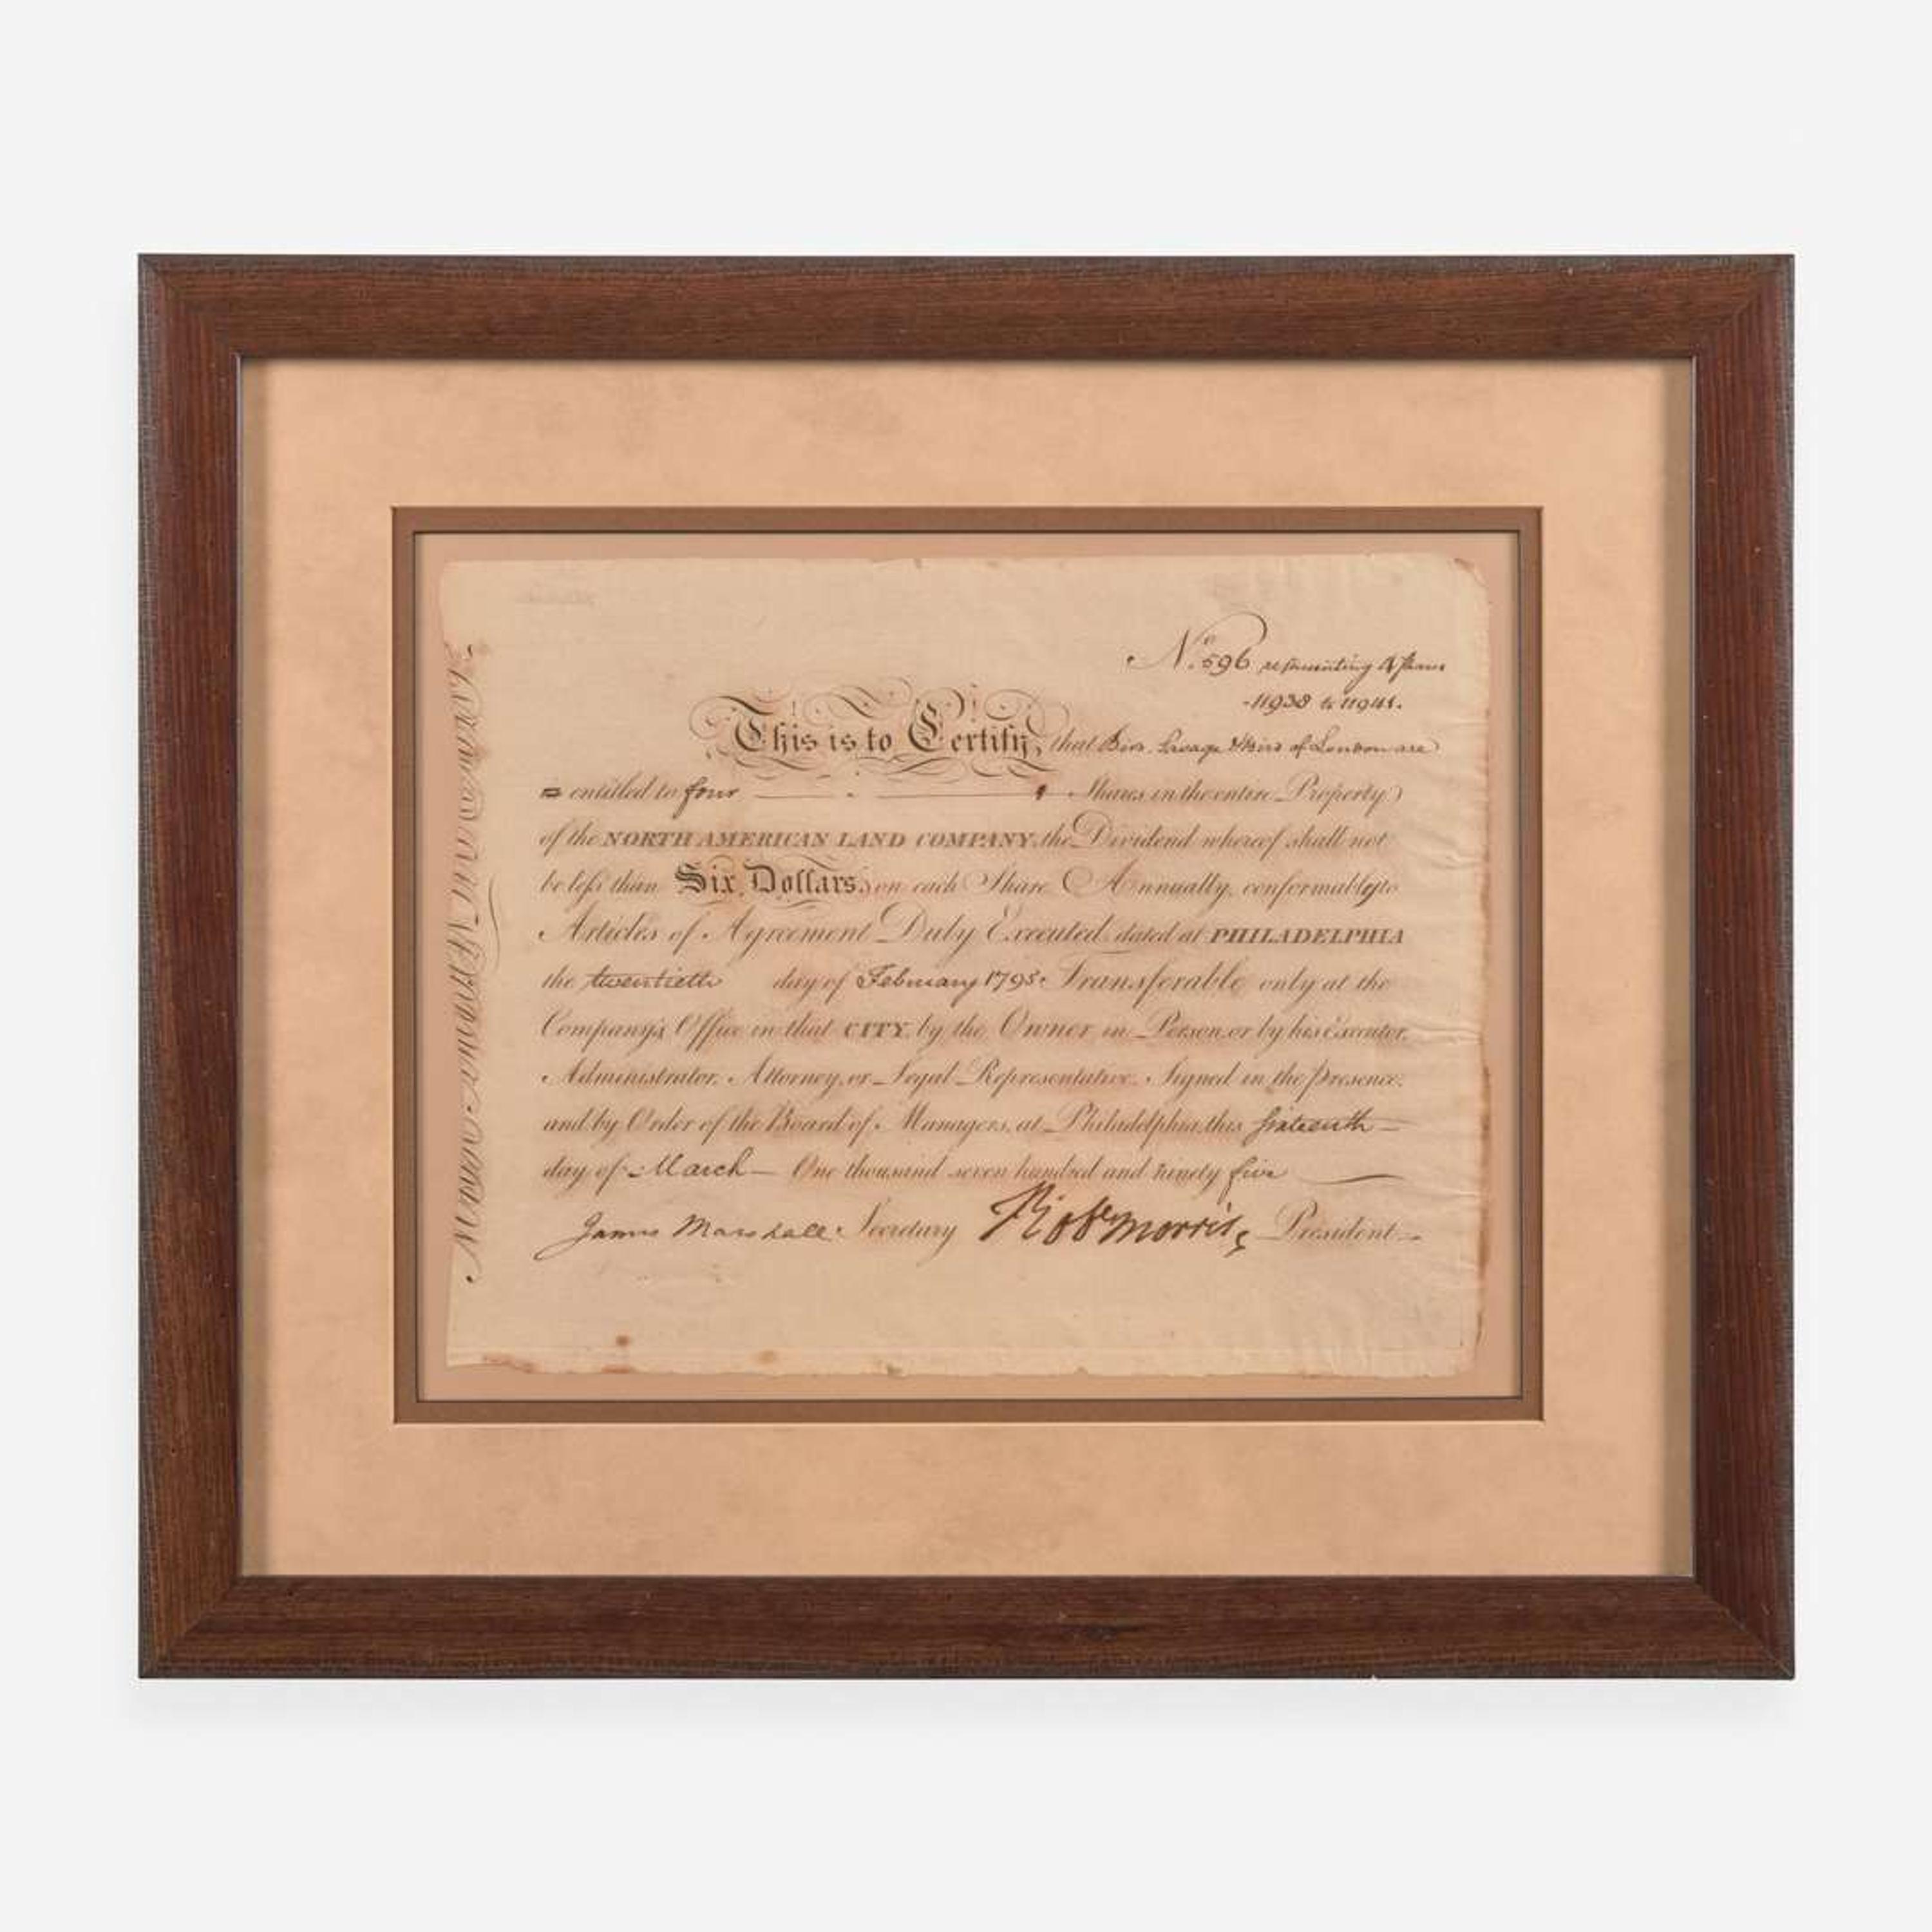 No. 596 representing 4 shares
11938 to 11941.
This is to Certify, that Bird, Savage & Bird of London are
entitled to four Shares in the entire Property
of the NORTH AMERICAN LAND COMPANY, the Dividend whereof shall not
be less than Six Dollars, on each Share Annually, conformably to
Articles of Agreement Duly Executed, dated at PHILADELPHIA
the twentieth day of February 1795. Transferable only at the
Company's Office in that CITY, by the Owner in Person, or by his Executor,
Administrator, Attorney, or Legal Representative. Signed in the presence,
and by Order of the Board of Managers, at Philadelphia, this Sixteenth
day of March One thousand seven hundred and ninety five
James Marshall Secretary Robt Morris President